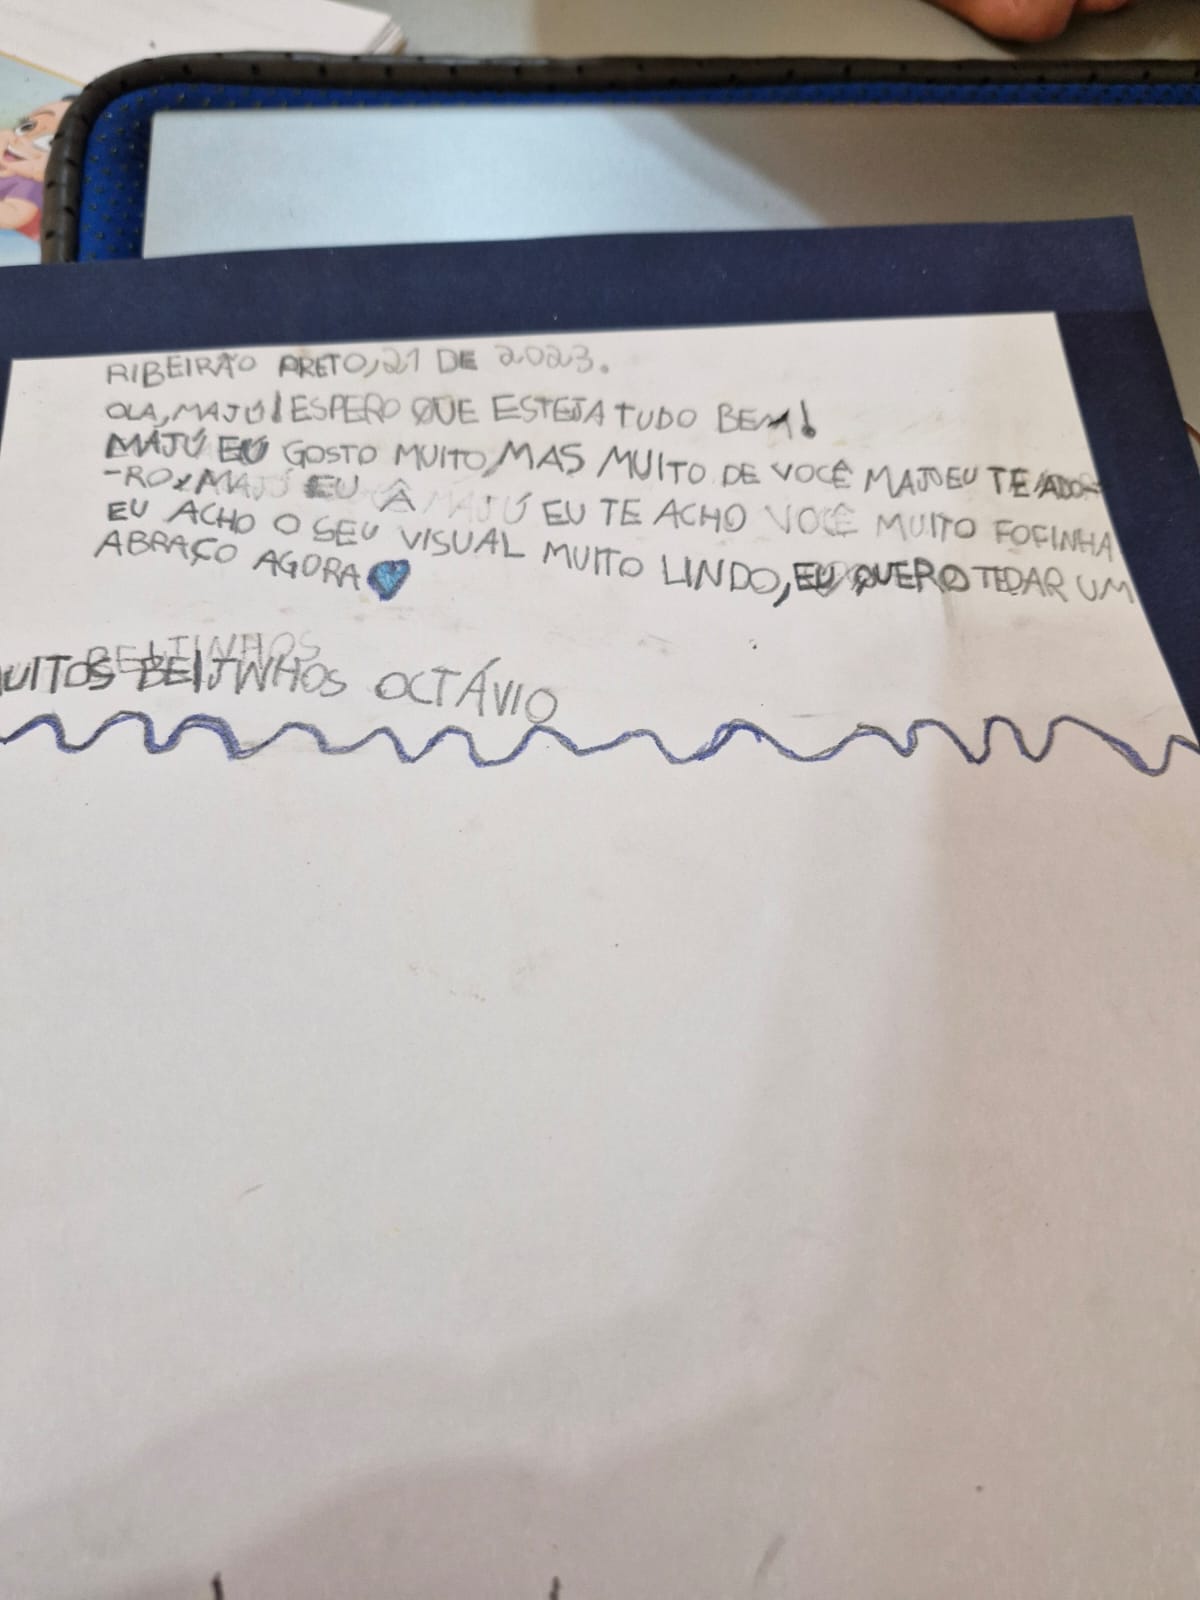 RIBEIRÃO PRETO,21 DE 2023.
OLÁ,MAJÚ!ESPERO QUE ESTEJA TUDO BEM!
MAJÚ EU GOSTO MUITO,MAS MUITO DE VOCÊ MAJUEU TE ADO
-RO,MAJÚ EU Â MAJÚ EU TE ACHO VOCÊ MUITO FOFINHA
EU ACHO O SEU VISUAL MUITO LINDO,EU QUERO TEDAR UM
ABRAÇO AGORA
BEIJINHOS
UITOS BEIJINHOS OCTÁVIO